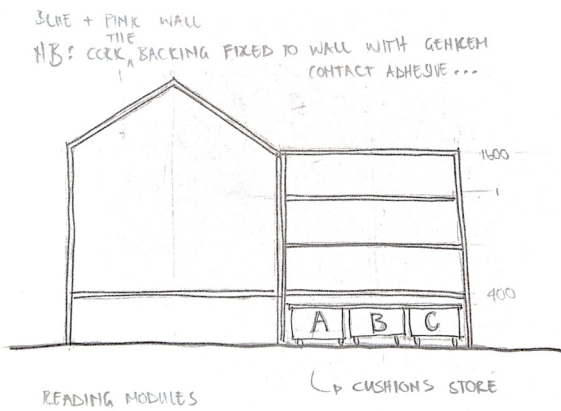 BLUE + PINK WALL
TILE
NB: CORK ^ BACKING FIXED TO WALL WITH GENKEM
CONTACT ADHESIVE...
1600
1
400
A B C
READING MODULES
CUSHIONS STORE